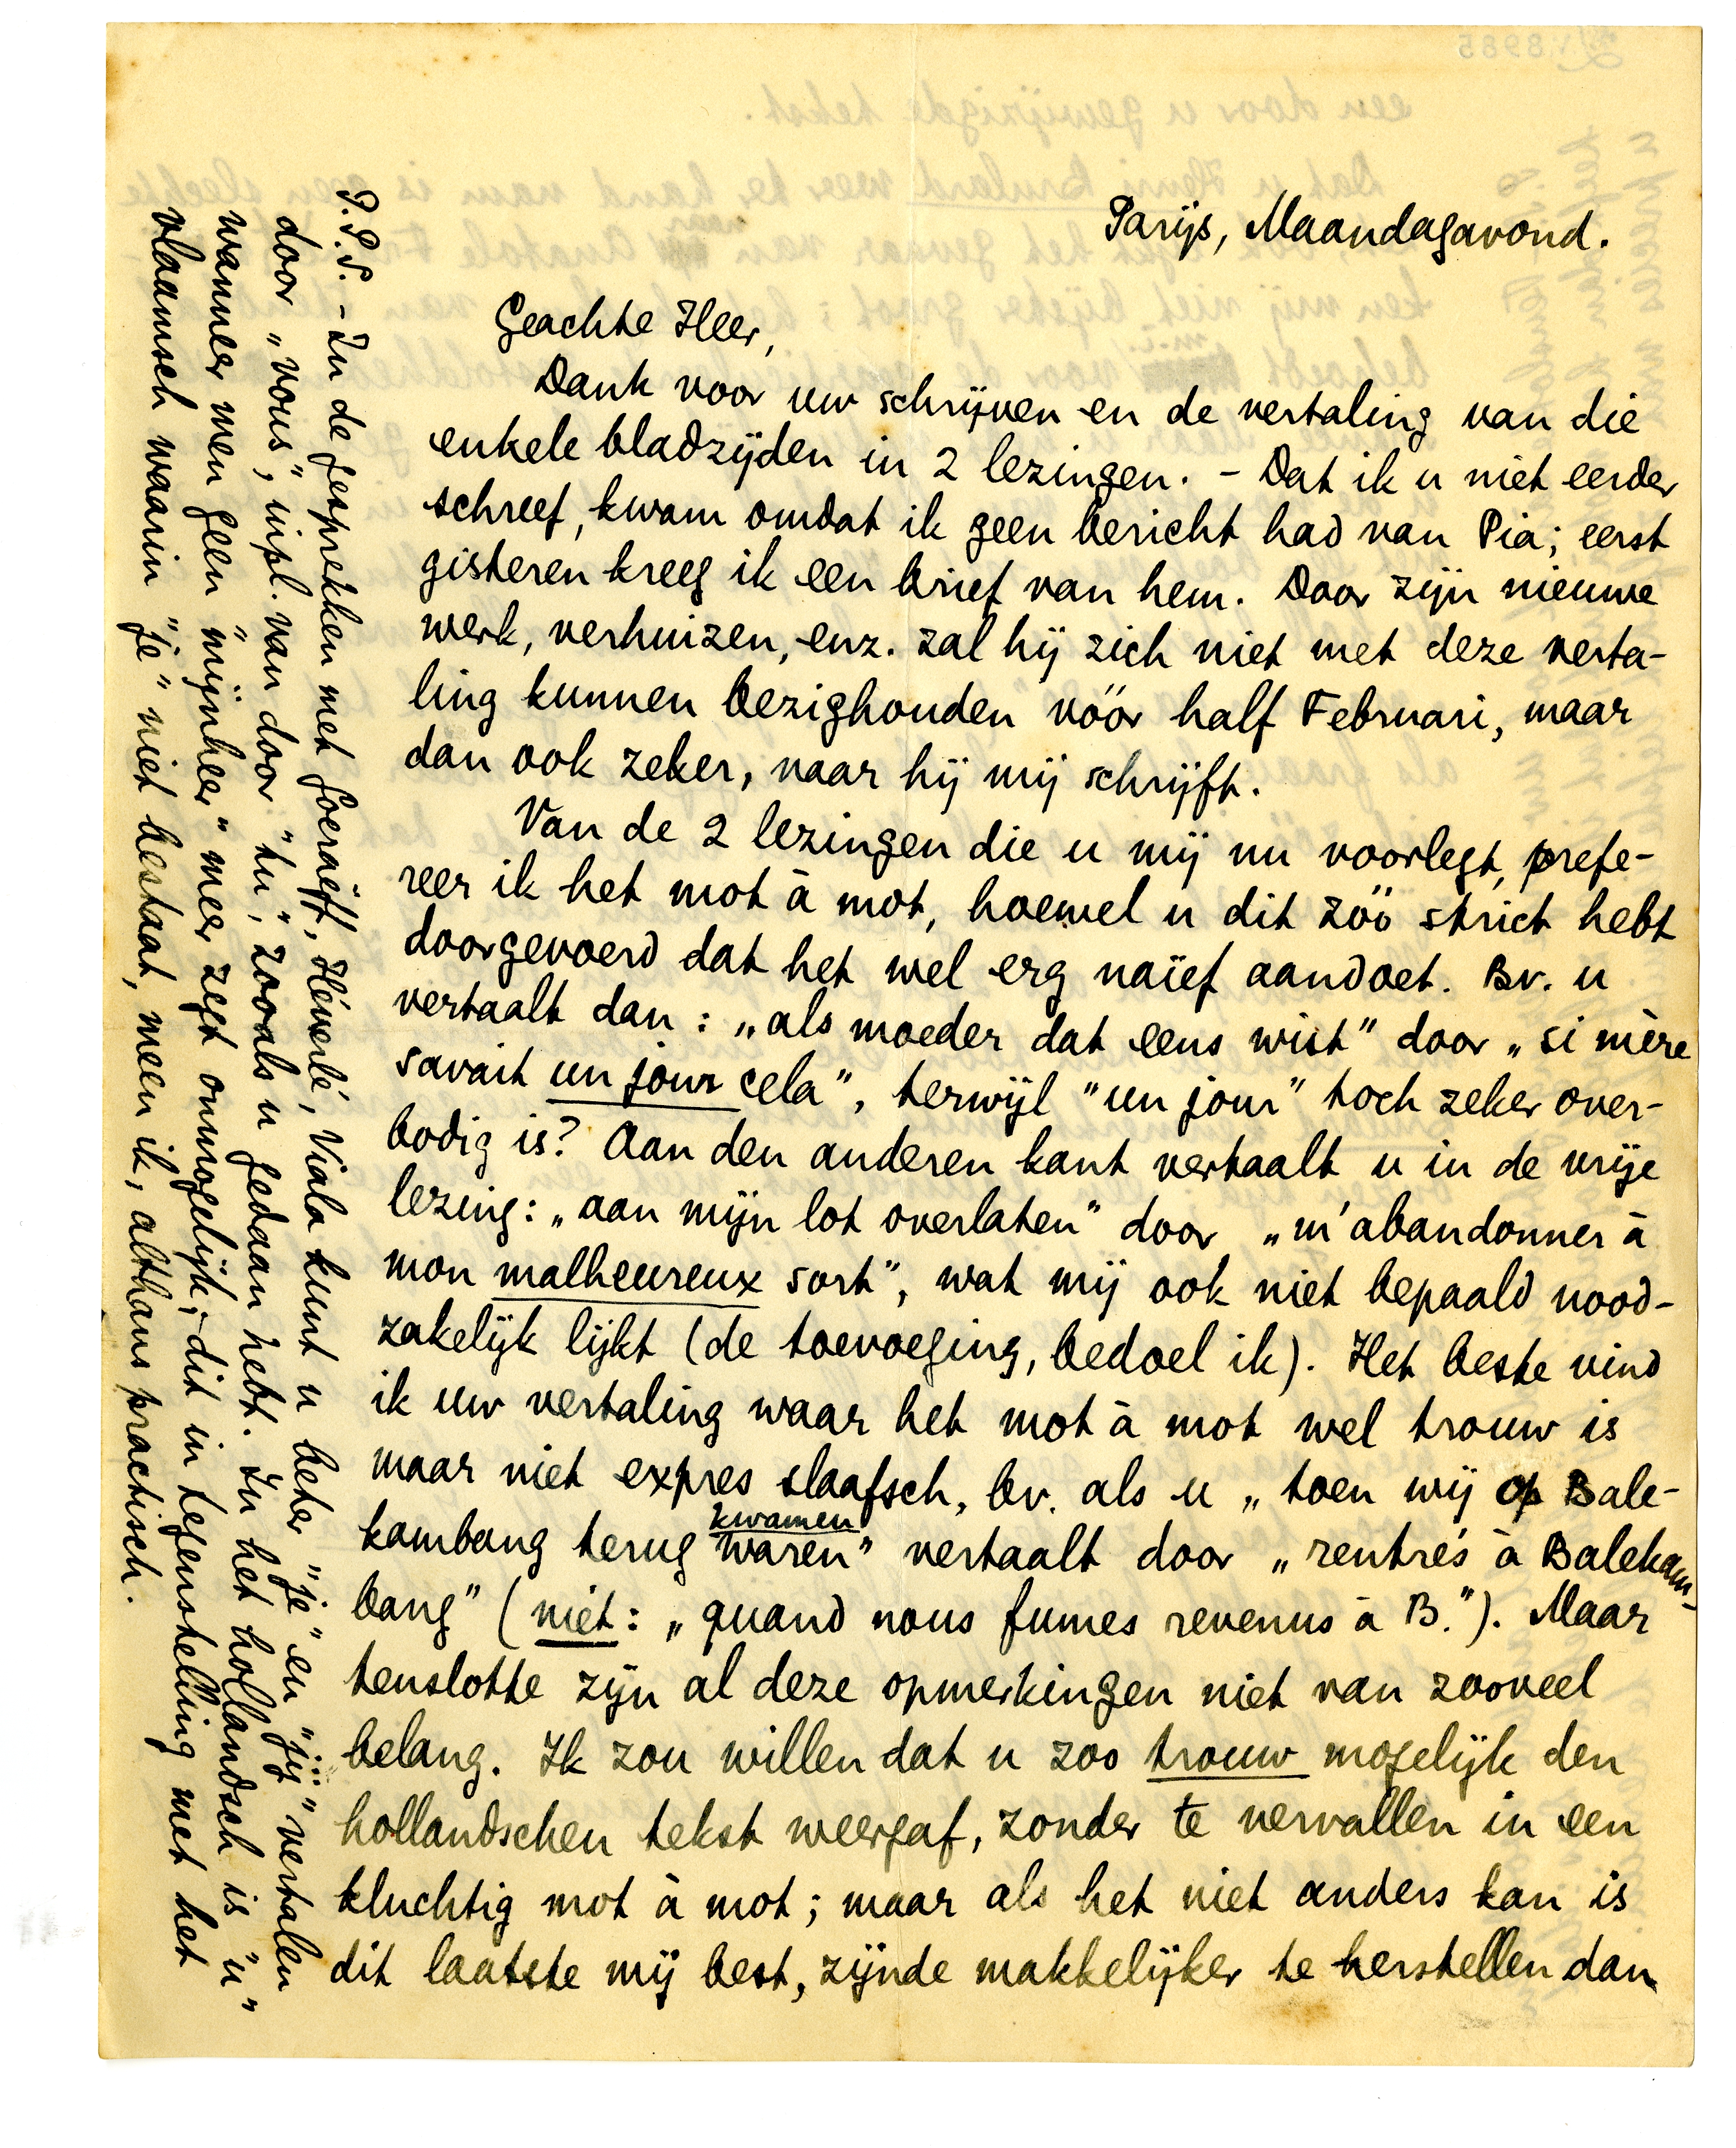 Parijs, Maandagavond.
Geachte Heer,
Dank voor uw schrijven en de vertaling van die
enkele bladzijden in 2 lezingen. – Dat ik u niet eerder
schreef, kwam omdat ik geen bericht had van Pia; eerst
gisteren kreeg ik een brief van hem. Door zijn nieuwe
werk, verhuizen, enz. zal hij zich niet met deze verta-
ling kunnen bezighouden vóór half Februari, maar
dan ook zeker, naar hij mij schrijft.
Van de 2 lezingen die u mij nu voorlegt, prefe-
reer ik het mot à mot, hoewel u dit zóó strict hebt
doorgevoerd dat het wel erg naïef aandoet. Bv. u
vertaalt dan: „als moeder dat eens wist” door „si mère
savait un jour cela”, terwijl "un jour" toch zeker over-
bodig is? Aan den anderen kant vertaalt u in de vrije
lezing: „aan mijn lot overlaten” door „m'abandonner à
mon malheureux sort”, wat mij ook niet bepaald nood-
zakelijk lijkt (de toevoeging, bedoel ik). Het beste vind
ik uw vertaling waar het mot à mot wel trouw is
maar niet expres slaafsch, bv. als u „toen wij op Bale-
kambang terug waren” vertaalt door „rentrés à Balekam-
kwamen
bang” (niet: „quand nous fumes revenus à B.”). Maar
tenslotte zijn al deze opmerkingen niet van zooveel
belang. Ik zou willen dat u zoo trouw mogelijk den
hollandschen tekst weergaf, zonder te vervallen in een
kluchtig mot à mot; maar als het niet anders kan is
dit laatste mij best, zijnde makkelijker te herstellen dan
P.P.S. – In de gesprekken met Goeraëff, Héverlé, Viala kunt u beter "je" en "jij" vertalen
door „vous”, inpl. van door "tu", zooals u gedaan hebt. In het hollandsch is "u"
wanneer men geen "mijnheer" meer zegt onmogelijk; dit in tegenstelling met het
vlaamsch waarin "je" niet bestaat, meen ik, althans practisch.